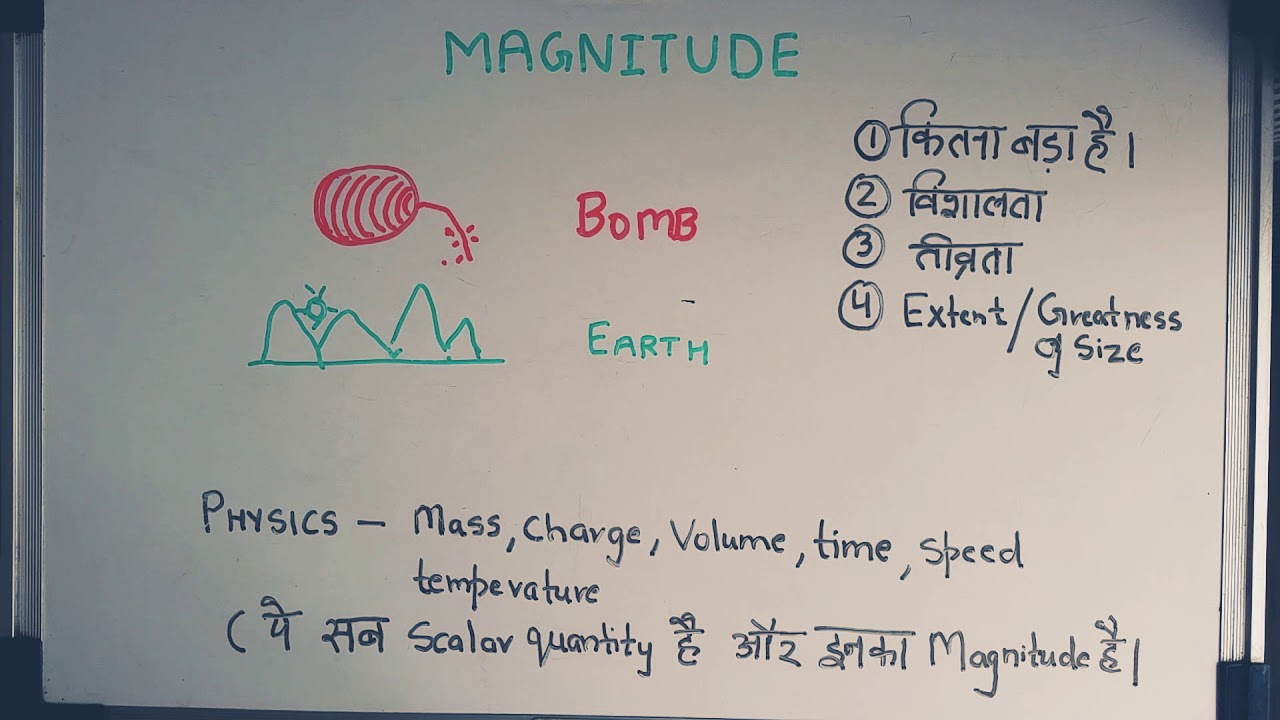 MAGNITUDE
① कितना बड़ा है।
BOMB
② विशालता
③ तीव्रता
④ Extent / Greatness
of Size
EARTH
PHYSICS - Mass, Charge, Volume, time, speed
temperature
( ये सब Scalar quantity है और इनका Magnitude है।